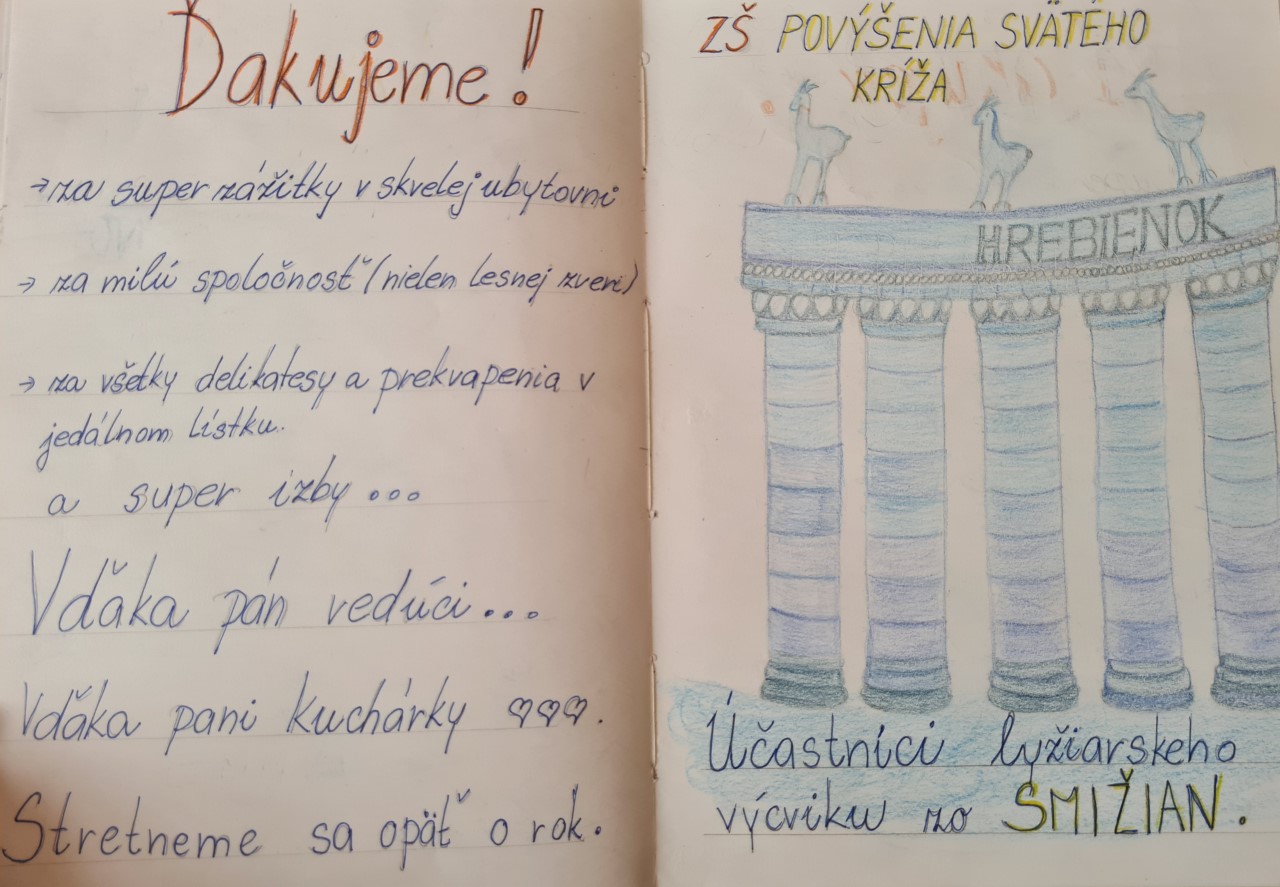 Ďakujeme!
→ za super zážitky v skvelej ubytovni
→ za milú spoločnosť (nielen lesnej zveri)
→ za všetky delikatesy a prekvapenia v
jedálnom lístku.
a super izby...
Vďaka pán vedúci...
Vďaka pani kuchárky ♡♡♡.
Stretneme sa opäť o rok.
ZŠ POVÝŠENIA SVÄTÉHO
KRÍŽA
HREBIENOK
Účastníci lyžiarskeho
výcviku zo SMIŽIAN.